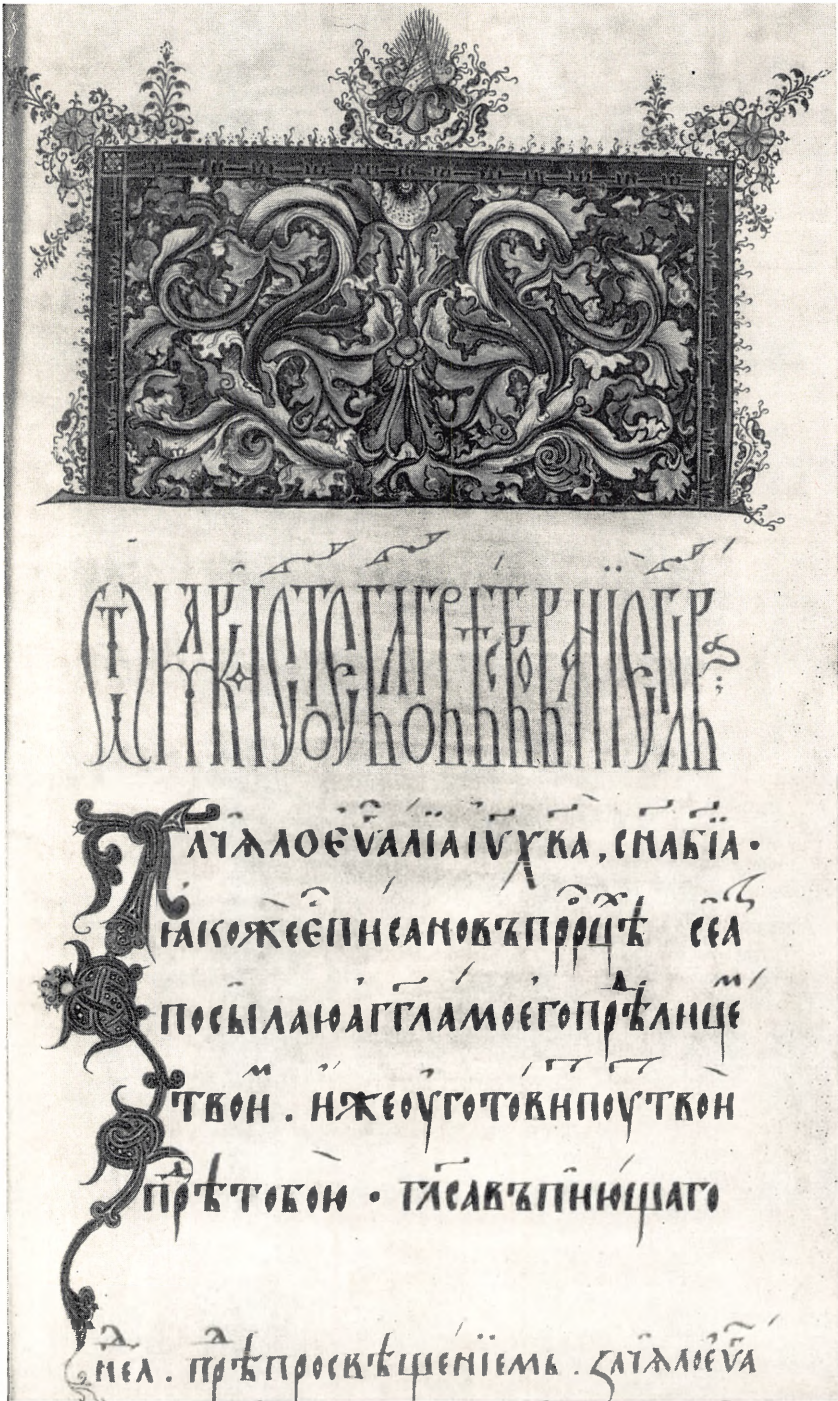 Ѿ МАРКА СТ҃ОЕ БЛ҃ГОВѢСТВОВАНЇЕ
Зачѧло еѵⷢ҇алїа і҆ѵ҃ х҃ва, сн҃а б҃їа ·
ꙗкоже є҆ писано въ прⷪ҇рцⷯѣ се а
посылаю аг҃гла моего прⷣѣ лицеⷨ
твоиⷨ . иже оуготовит поут твои
прⷣѣ тобою · гл҃са въпиющаго
неⷣл . прⷣѣ просвѣщенїемь . зачѧло еѵ҃а